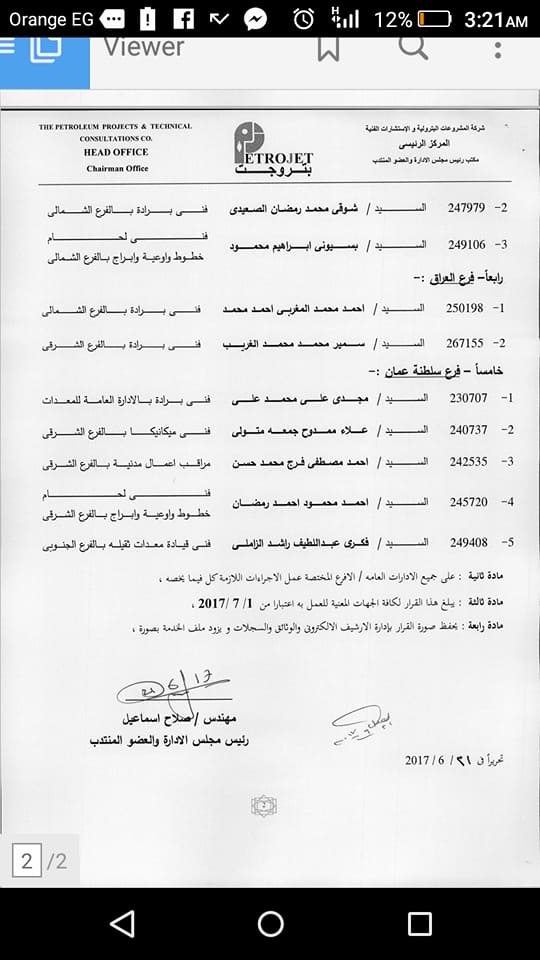 Orange EG 12% 3:21AM
Viewer
THE PETROLEUM PROJECTS & TECHNICAL
CONSULTATIONS CO.
HEAD OFFICE
Chairman Office
PETROJET
بتروجت
شركة المشروعات البترولية و الاستشارات الفنية
المركز الرئيسى
مكتب رئيس مجلس الادارة والعضو المنتدب
2- 247979 الســـيد / شوقى محمد رمضان الصعيدى فنـى بـرادة بـالفرع الشمـالى
3- 249106 الســـيد / بسيونى ابراهيم محمـود فنـــى لحـــام
خطـوط واوعيـة وابـراج بـالفرع الشمالى
رابعاً – فرع العراق :-
1- 250198 الســـيد / احمد محمد المغربى احمد محمد فنـى بـرادة بـالفرع الشمـالى
2- 267155 الســـيد / سمير محمـد محمـد الغريـب فنـى بـرادة بـالفرع الشـرقى
خامساً – فرع سلطنة عمان :-
1- 230707 الســـيد / مجـدى علـى محمـد علـى فنـى بـرادة بـالادارة العامـة للمعدات
2- 240737 الســـيد / عـلاء ممدوح جمعـه متـولى فنـى ميكانيكـا بـالفرع الشـرقى
3- 242535 الســـيد / احمد مصطفى فرج محمد حسن مراقب اعمـال مدنيـة بـالفرع الشرقى
4- 245720 الســـيد / احمد محمود احمد رمضان فنـــى لحـــام
خطـوط واوعيـة وابـراج بـالفرع الشرقى
5- 249408 الســـيد / فكرى عبداللطيف راشد الزاملى فنى قيـادة معـدات ثقيلـه بـالفرع الجنوبى
مادة ثانية : على جميع الادارات العامه / الافرع المختصة عمل الاجراءات اللازمة كل فيما يخصه ،
مادة ثالثة : يبلغ هذا القرار لكافة الجهات المعنية للعمل به اعتبارا من 1/ 7 /2017 ،
مادة رابعة : يحفظ صورة القرار بإدارة الارشيف الالكترونى والوثائق والسجلات و يزود ملف الخدمة بصورة ،
21/6/17
مهندس / صلاح اسماعيل
رئيس مجلس الادارة والعضو المنتدب
تحريراً فى ٢١ / 6 / 2017
2 /2